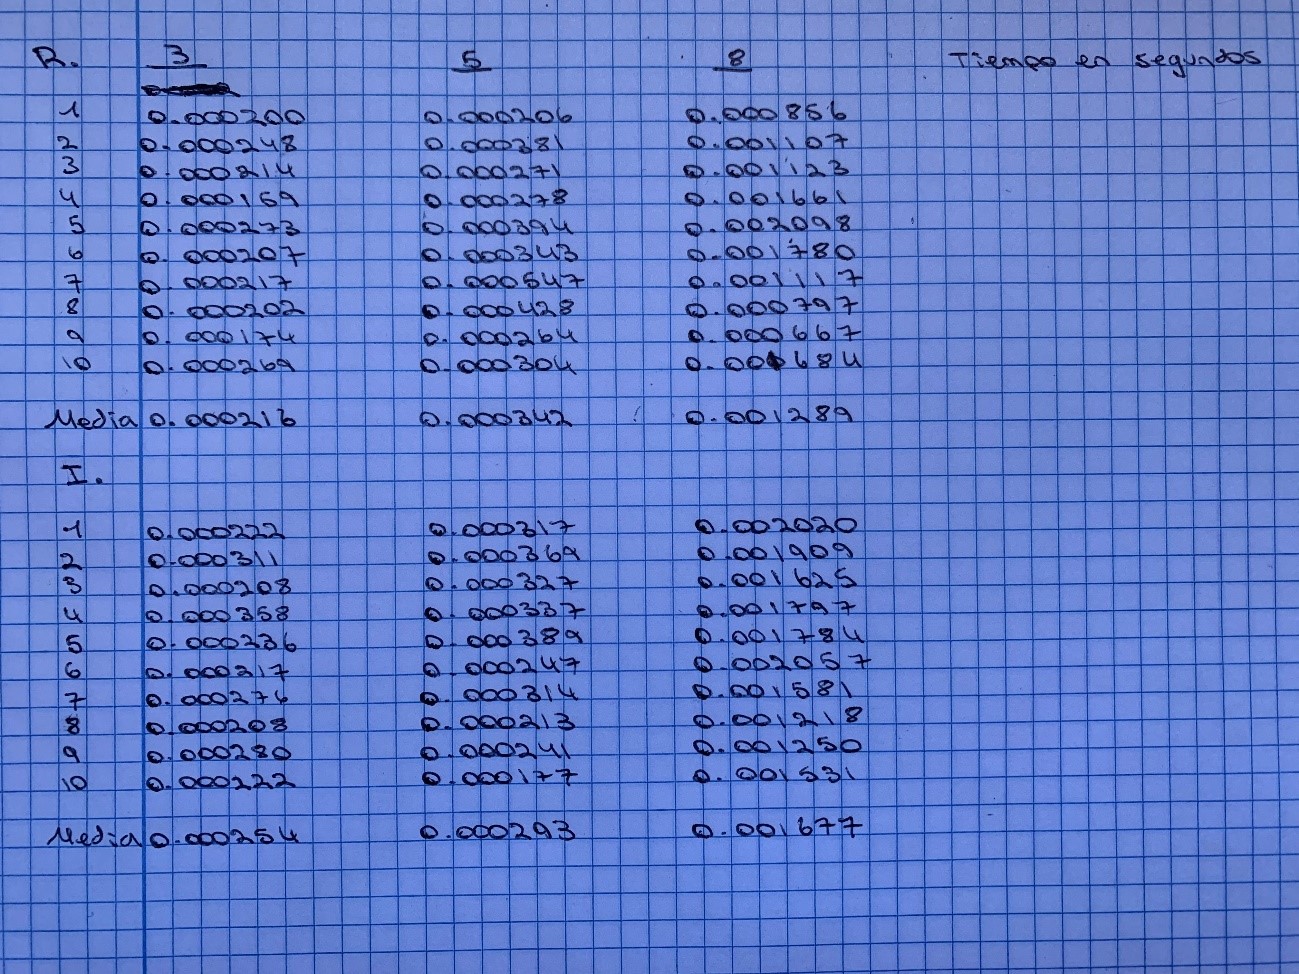 R. 3 5 8 Tiempo en segundos
1 0.000200 0.000206 0.000856
2 0.000248 0.000381 0.001107
3 0.000214 0.000271 0.001123
4 0.000159 0.000278 0.001661
5 0.000273 0.000394 0.002098
6 0.000207 0.000343 0.001780
7 0.000217 0.000547 0.001117
8 0.000202 0.000428 0.000797
9 0.000174 0.000264 0.000667
10 0.000269 0.000304 0.001684
Media 0.000216 0.000342 0.001289
I.
1 0.000222 0.000317 0.002020
2 0.000311 0.000369 0.001909
3 0.000208 0.000327 0.001625
4 0.000358 0.000337 0.001797
5 0.000236 0.000389 0.001784
6 0.000217 0.000247 0.002057
7 0.000276 0.000314 0.001581
8 0.000208 0.000213 0.001218
9 0.000280 0.000241 0.001250
10 0.000222 0.000177 0.001531
Media 0.000254 0.000293 0.001677